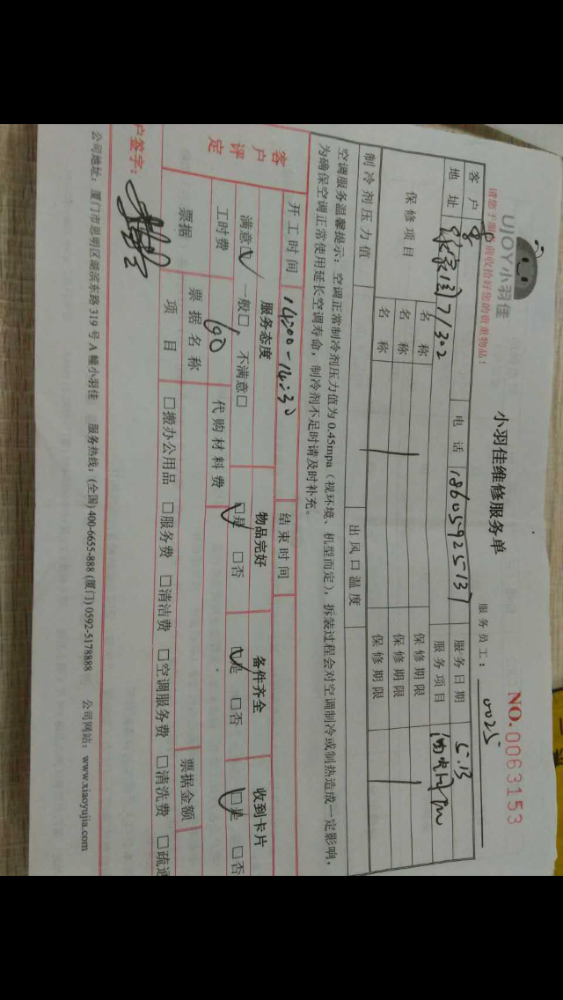 UJOY小羽佳
小羽佳维修服务单
NO. 0063153
服务员工: 0025
客户 电话 18605925137 服务日期 5.13
地址 71302 服务项目
保修项目 名称 保修期限
名称 保修期限
名称 保修期限
制冷剂压力值 出风口温度
空调服务温馨提示:空调正常制冷剂压力值为0.45mpa(视环境、机型而定),拆装过程会对空调制冷或制热造成一定影响,
为确保空调正常使用延长空调寿命,制冷剂不足时请及时补充。
开工时间 14:00-14:30 结束时间
客户评定 服务态度 物品完好 备件齐全 收到卡片
满意☑ 一般□, 不满意□ ☑是 □否 ☑是 □否 ☑是 □否
工时费 90 代购材料费
票据 票据名称 票据金额
项目 □搬办公用品 □服务费 □清洁费 □空调服务费 □清洗费 □疏通
户签字:
公司地址:厦门市思明区湖滨东路319号A幢小羽佳 服务热线:(全国)400-6655-888 (厦门)0592-5178888 公司网站:www.xiaoyujia.com